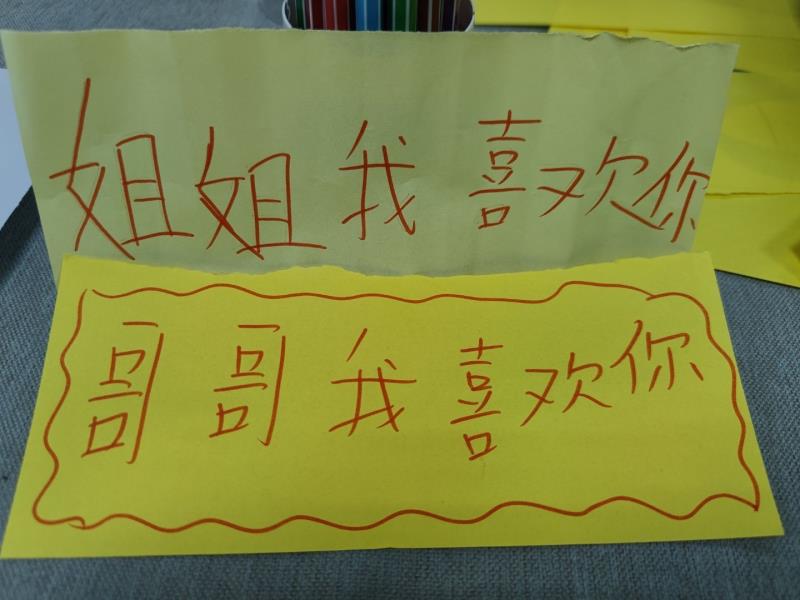 姐姐我喜欢你
哥哥我喜欢你